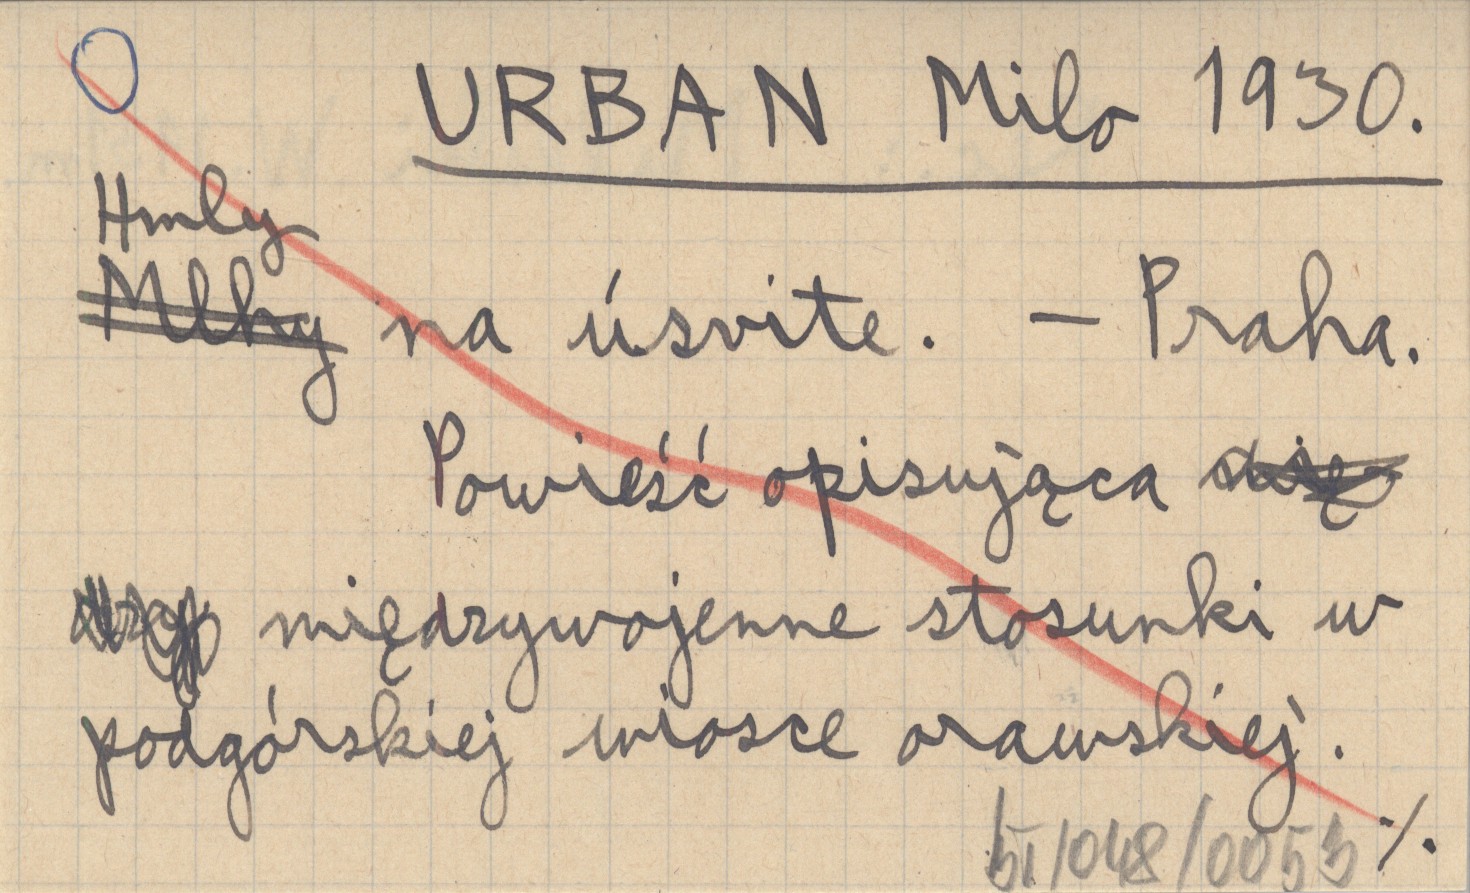 URBAN Milo 1930.
Hmly
Mlhy na úsvite. – Praha.
Powieść opisująca się
międzywojenne stosunki w
podgórskiej wiosce orawskiej.
/048/0053 ·/.